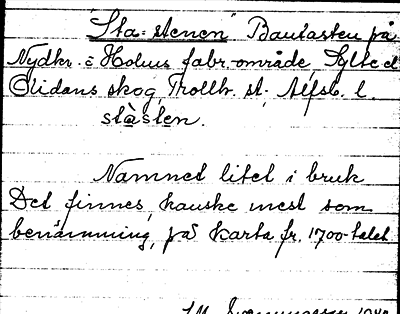 "Sta-stenen" Bautasten på
Nydkr. å Holms fabr.-område, Sylte el
Slidans skog, Trollh. st. Älfsb. l.
stàsten.
Namnet litet i bruk
Det finnes kanske mest som
benämning på karta fr. 1700-talet